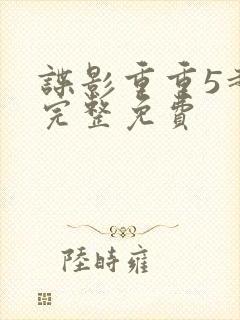 諜影重重5
完整免費
陸時雍